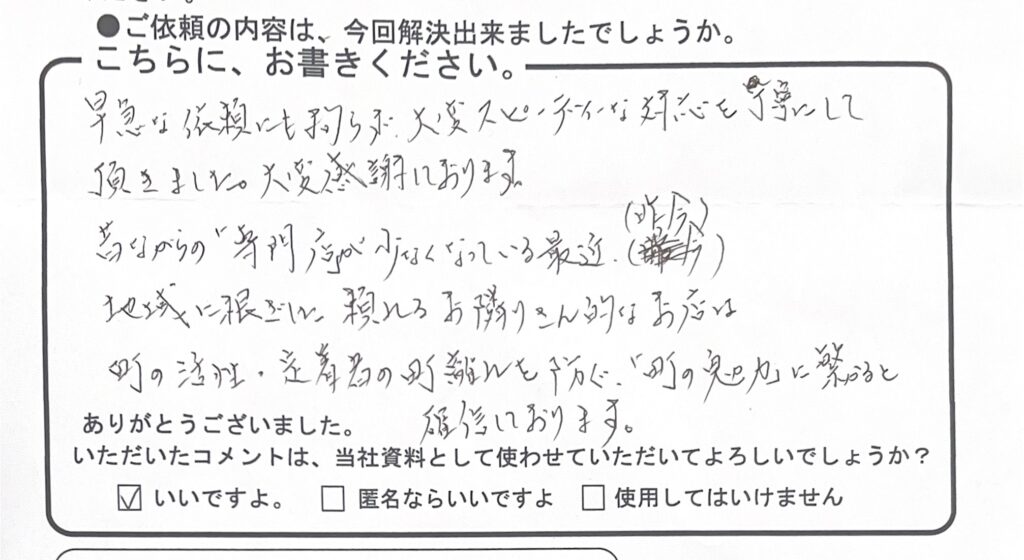 ●ご依頼の内容は、今回解決出来ましたでしょうか。
こちらに、お書きください。
早急な依頼にも拘らず、大変スピーディーな対応を丁寧にして
頂きました。大変感謝しております。
(昨今)
昔ながらの"専門店"が少なくなっている最近、
地域に根ざした、頼れるお隣りさん的なお店は
町の活性・定着者の町離れを防ぐ、「町の魅力」に繋がると
確信しております。
ありがとうございました。
いただいたコメントは、当社資料として使わせていただいてよろしいでしょうか?
☑ いいですよ。 □ 匿名ならいいですよ □ 使用してはいけません